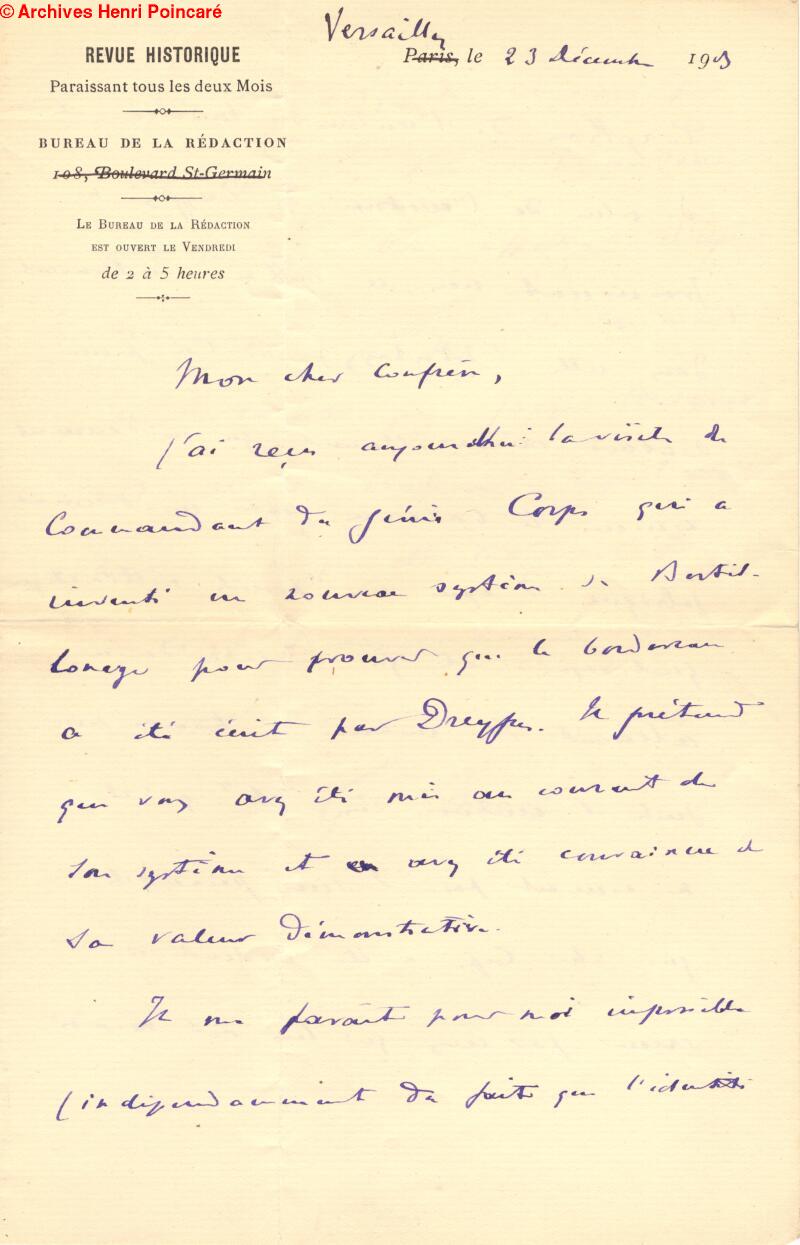 © Archives Henri Poincaré
Versailles
REVUE HISTORIQUE
Paris, le 23 Décembre 1903
Paraissant tous les deux Mois
BUREAU DE LA RÉDACTION
108, Boulevard St-Germain
LE BUREAU DE LA RÉDACTION
EST OUVERT LE VENDREDI
de 2 à 5 heures
Mon cher Confrère,
J'ai reçu aujourd'hui la visite du
Commandant du Génie Corps qui a
inventé un nouveau système de Bertil-
lonage pour prouver que le bordereau
a été écrit par Dreyfus. Il prétend
que vous avez été mis au courant de
son système et avez été convaincu de
sa valeur démonstrative.
Il me paraît pour moi impossible
(indépendamment du fait que l'identité